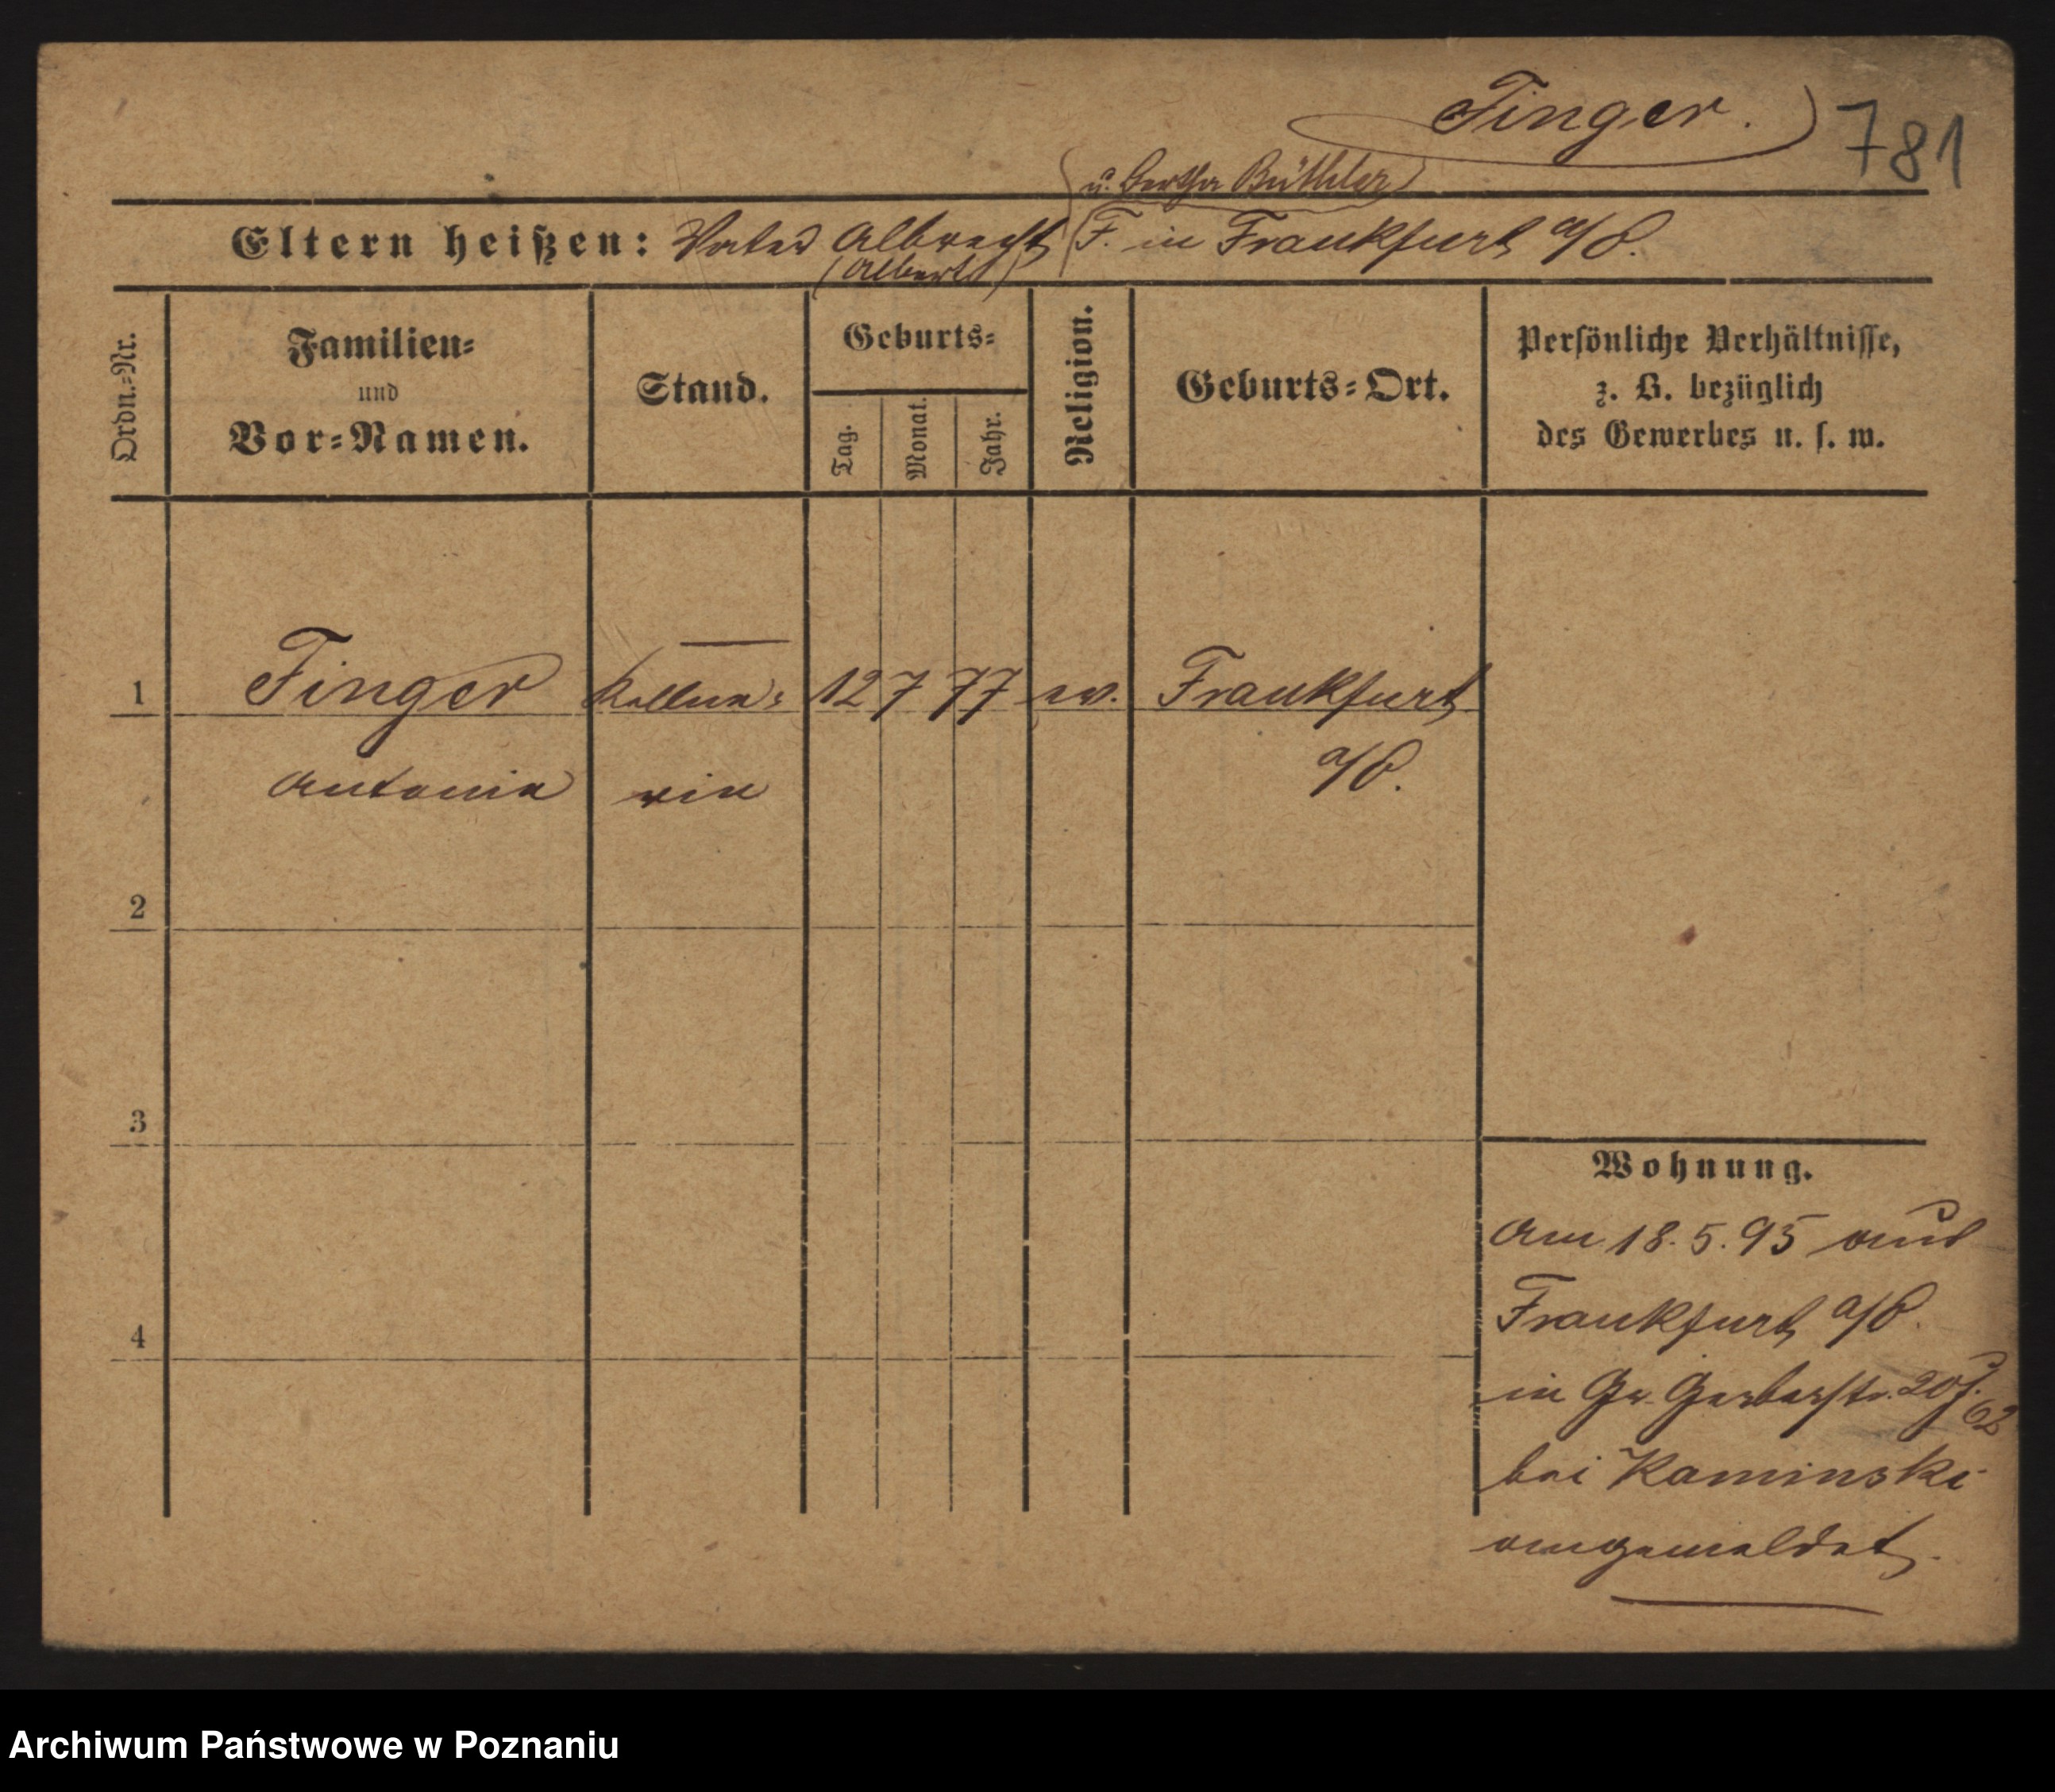 Finger.
781
u. Bertha Büthler
Eltern heißen: Vater Albrecht F. in Frankfurt a/O.
(Albert)
Ordn.=Nr.
Familien=
und
Vor=Namen.
Stand.
Geburts=
Tag.
Monat.
Jahr.
Religion.
Geburts=Ort.
Persönliche Verhältnisse,
z. B. bezüglich
des Gewerbes u. s. w.
1 Finger Kellne= 12 7 77 ev. Frankfurt
Antonie rin a/O.
2
3
4
Wohnung.
Am 18.5.95 aus
Frankfurt a/O.
in Gr. Gerberstr. 20
bei Kaminski
angemeldet.
Archiwum Państwowe w Poznaniu